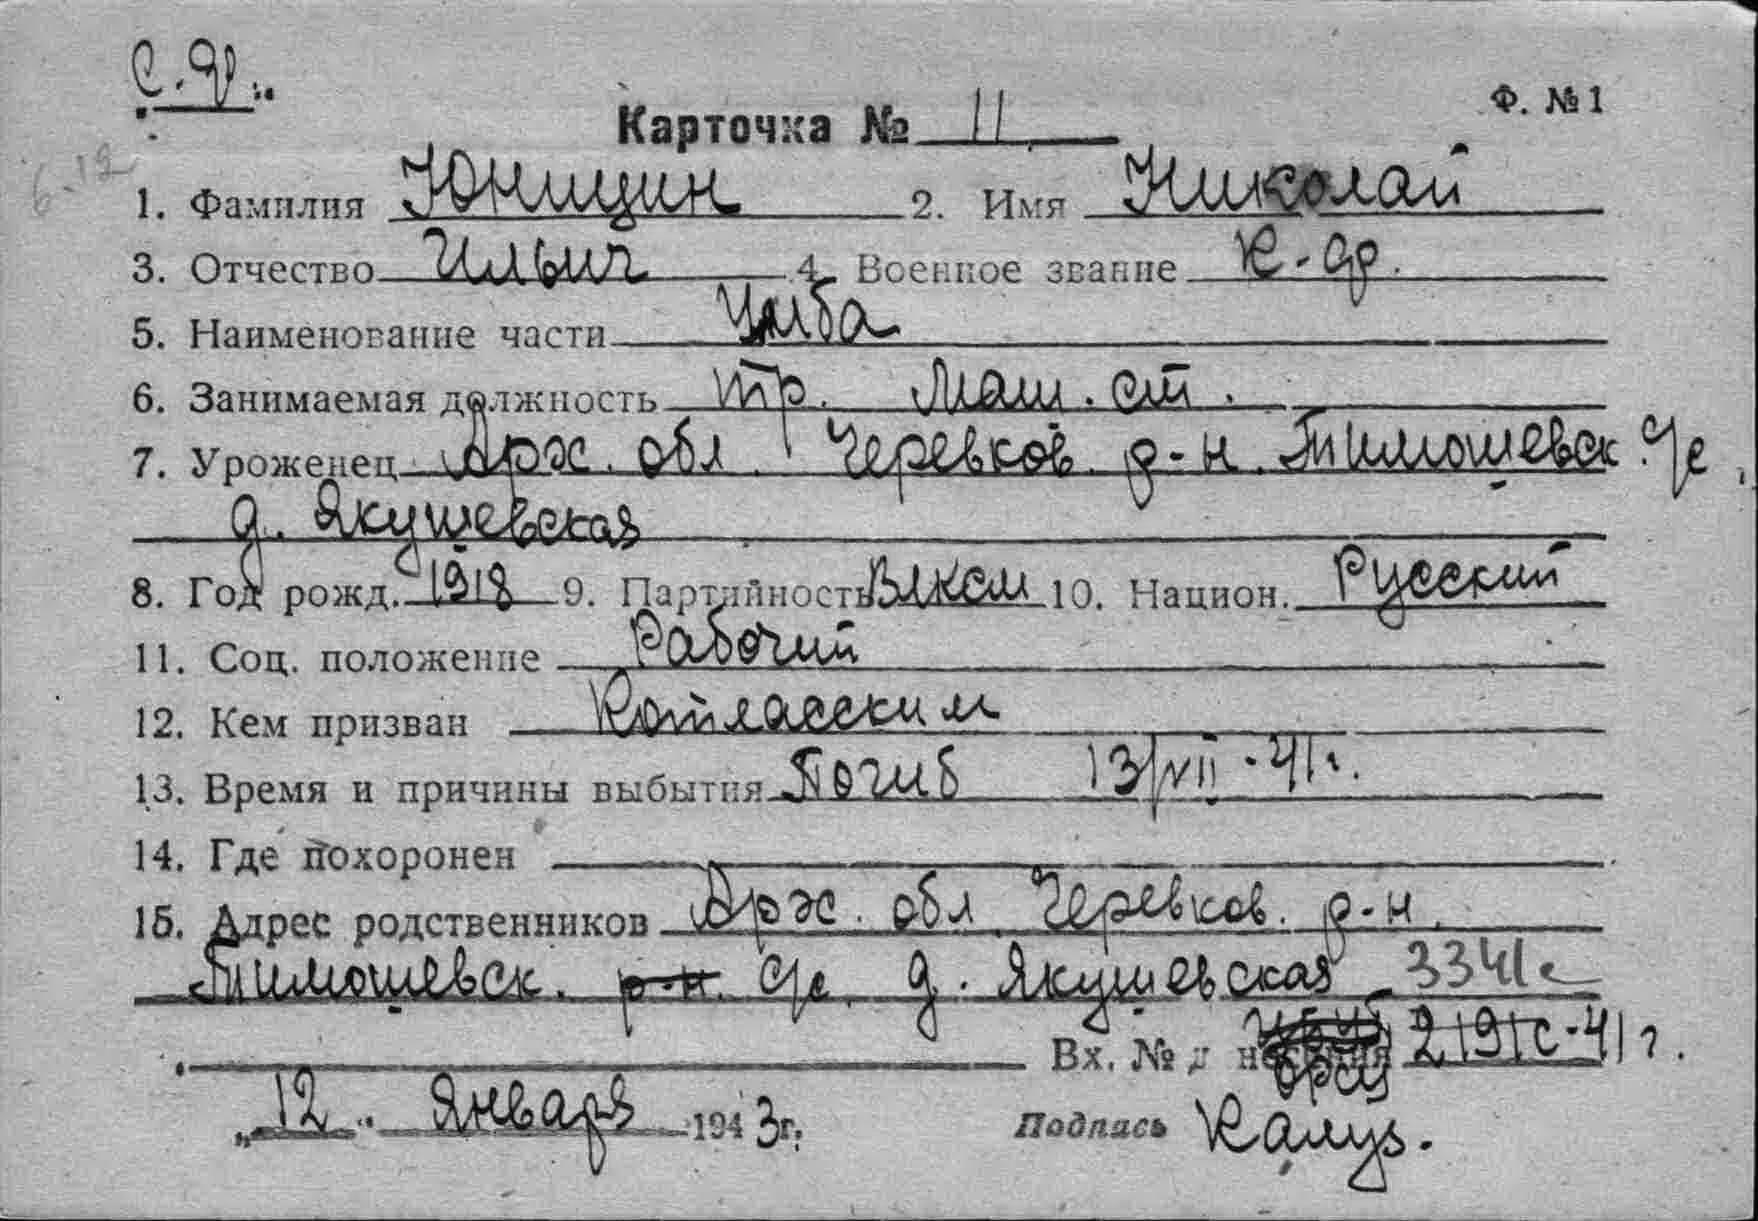 С.Ф.
Ф. №1
Карточка № 11
6.12
1. Фамилия Юницин 2. Имя Николай
3. Отчество Ильич 4. Военное звание К-фл.
5. Наименование части
6. Занимаемая должность тр. маш. ст.
7. Уроженец Арх. обл. Черевков. р-н. Тимошевск. с/с
д. Якушевская
8. Год рожд. 1918 9. Партийность ВЛКСМ 10. Национ. Русский
11. Соц. положение Рабочий
12. Кем призван Котласским
13. Время и причины выбытия Погиб 13/VII-41г.
14. Где похоронен
15. Адрес родственников Арх. обл Черевков. р-н.
Тимошевск. р-н. с/с. д. Якушевская 3341с
Вх. № 2191с-41г.
„12" Января 1943г. Подпись